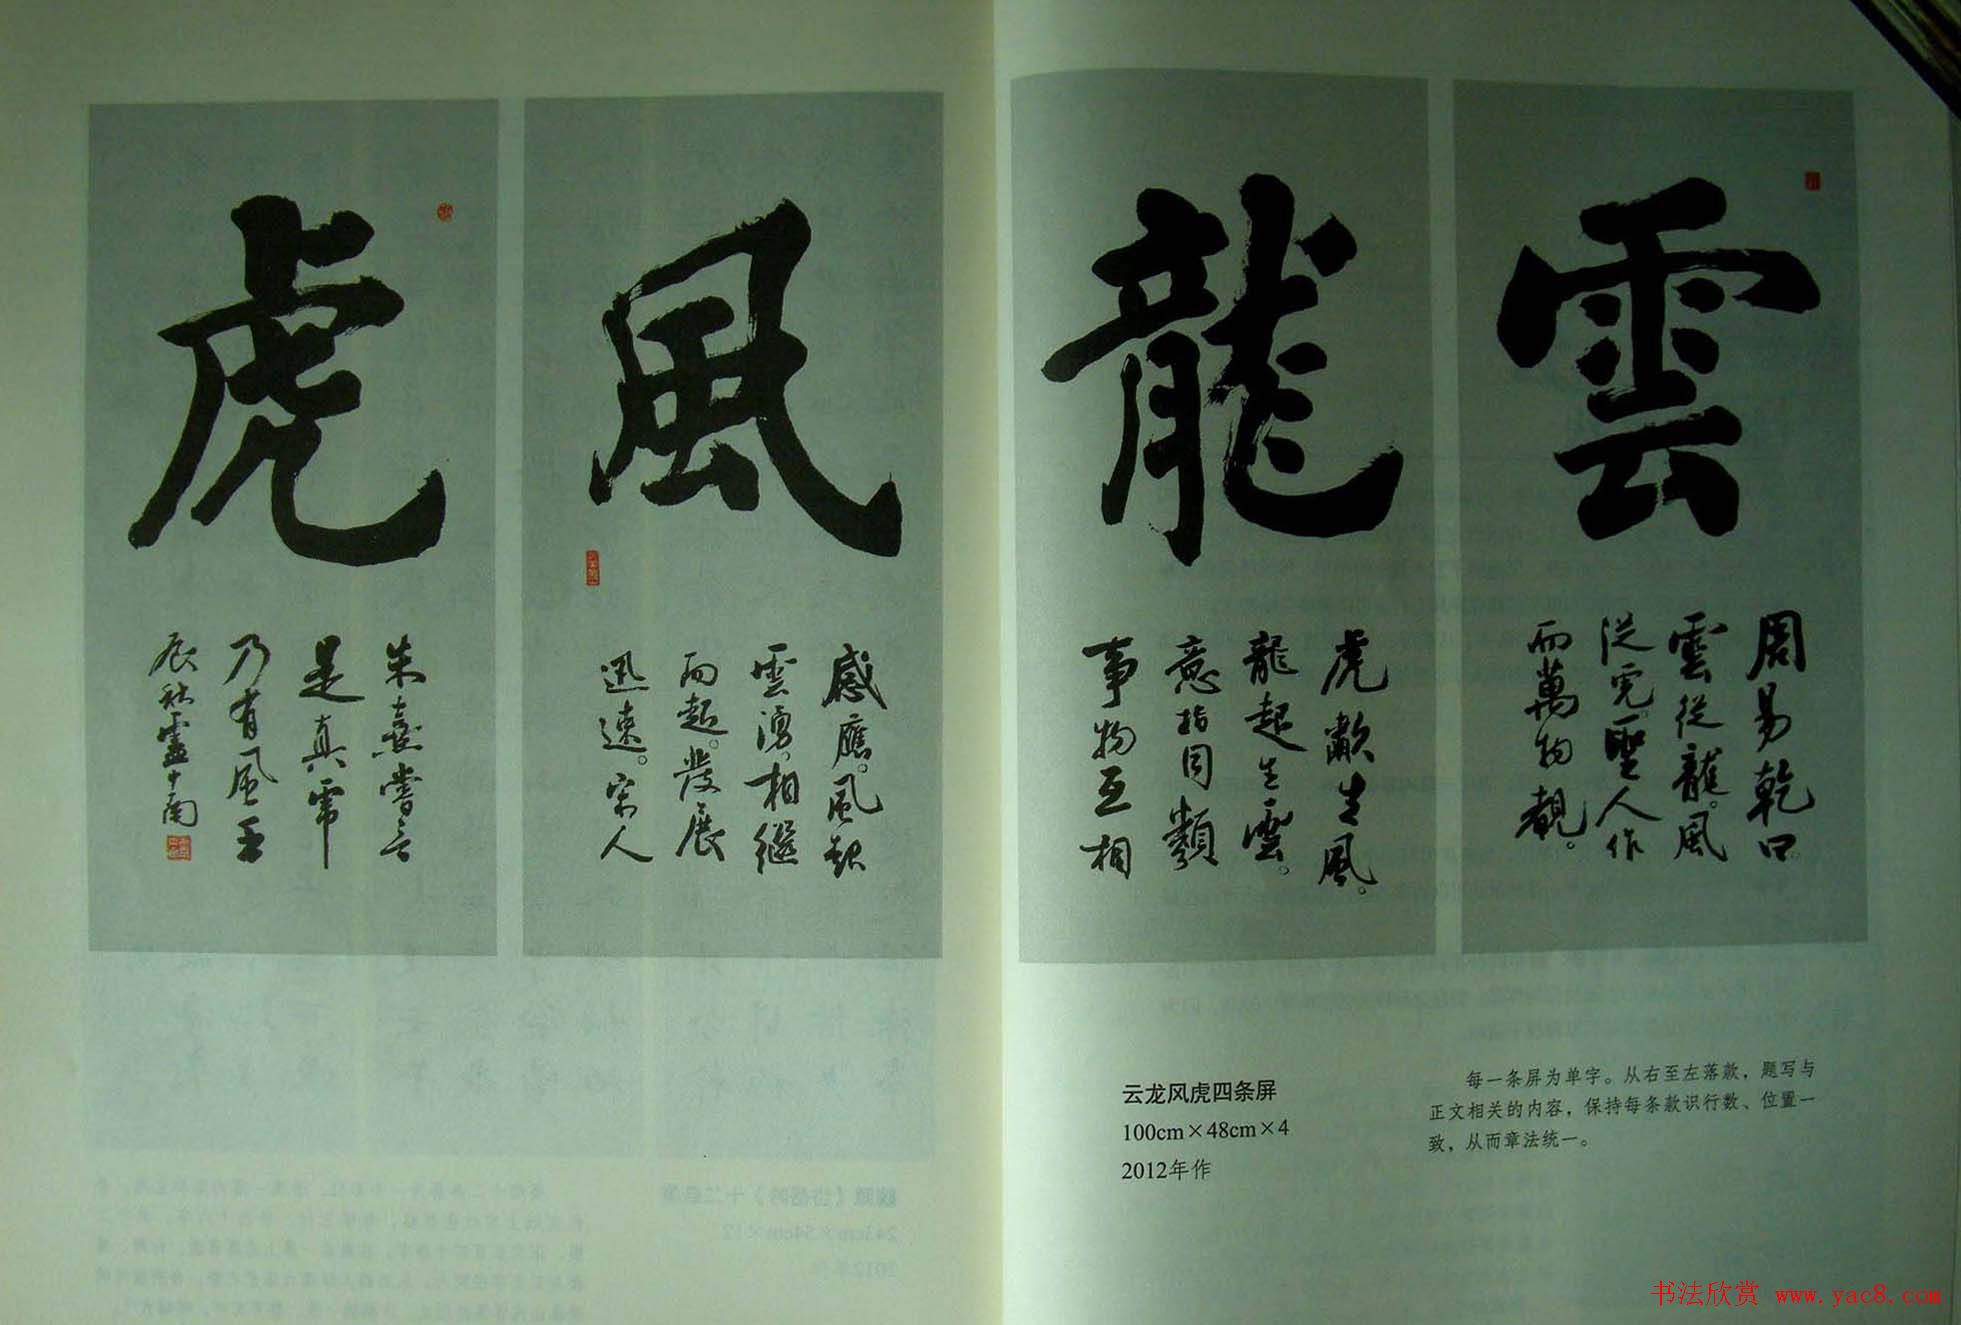 雲
周易乾曰
雲從龍。風
從虎。聖人作
而萬物覩。
龍
虎歗生風。
龍起生雲。
意指同類
事物互相
風
感應。風起
雲湧，相繼
而起。發展
迅速。宋人
虎
朱熹嘗言
是真虎
乃有風
辰秋
云龙风虎四条屏
100cm×48cm×4
2012年作
每一条屏为单字。从右至左落款，题写与
正文相关的内容，保持每条款识行数、位置一
致，从而章法统一。
书法欣赏 www.yac8.com